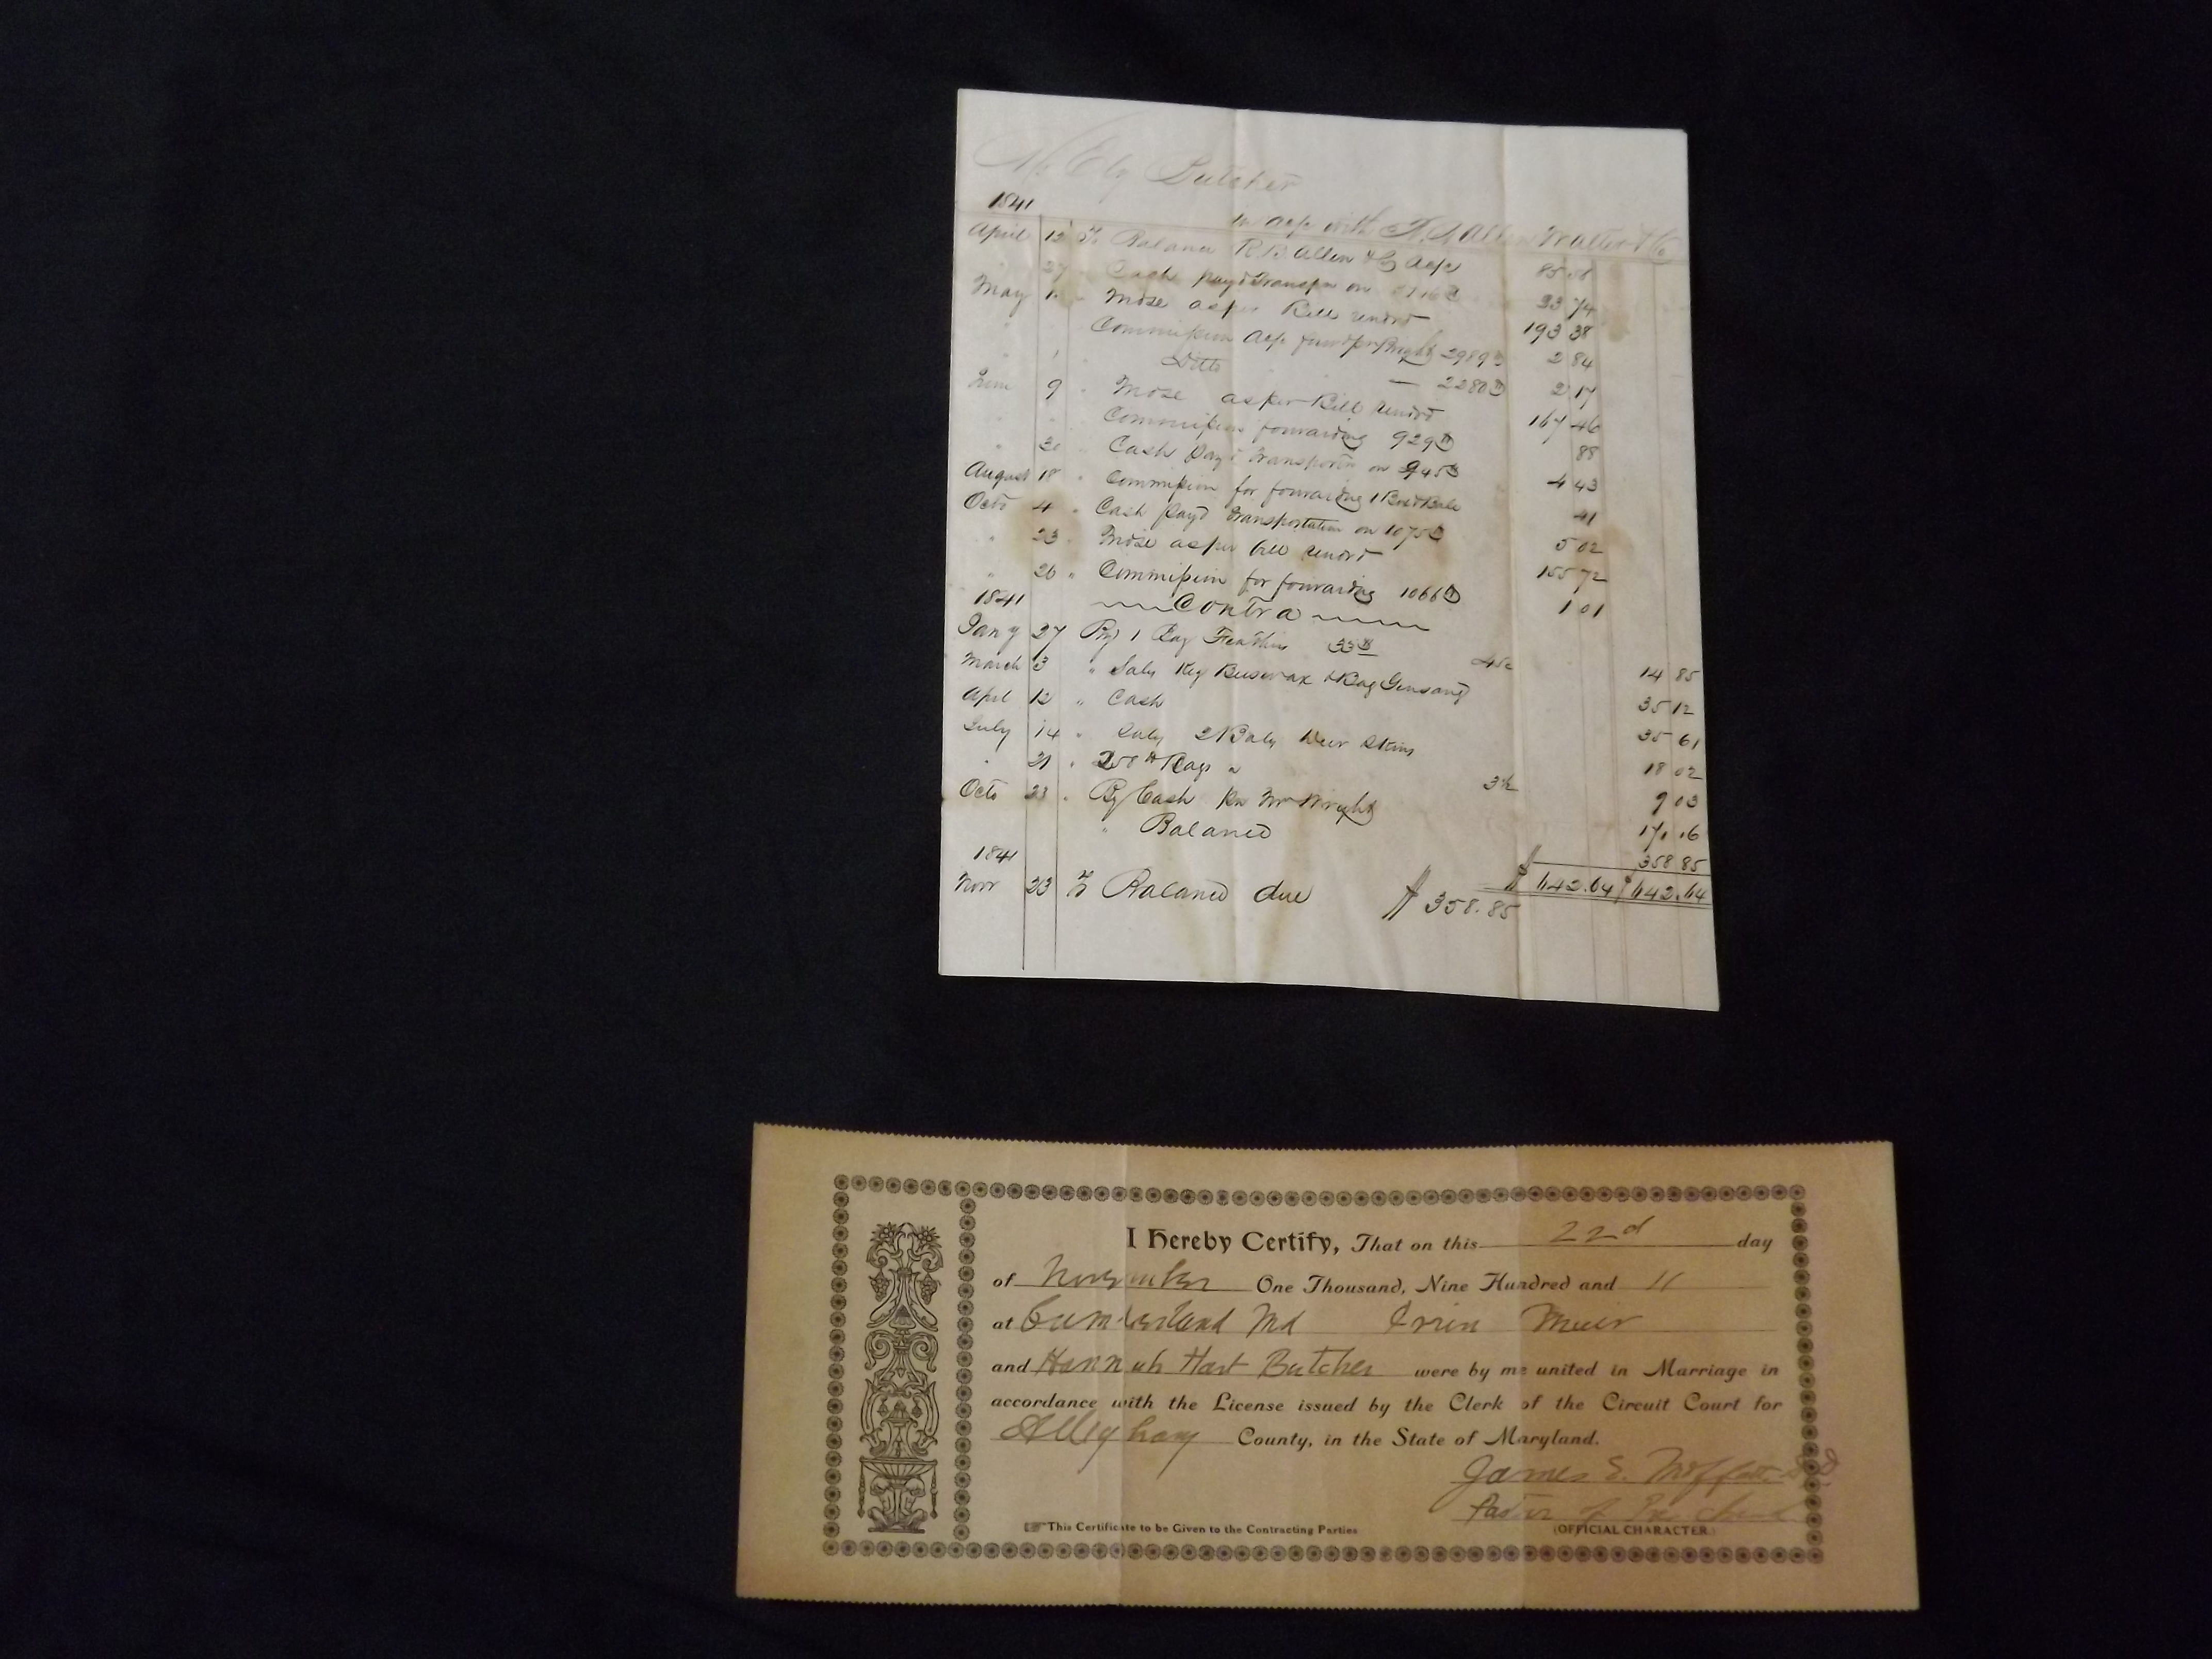 Mr Ely Butcher
1841 in a/c with Allen Walter & Co
April 12 To Balance R B Allen & Co a/c 85
27 " Cash payd Transpn on 33 74
May 1 " Mdse as per Bill rendd 193 38
Commission 2989 lb 2 84
Ditto — 2280 lb 2 17
June 9 " Mdse as per Bill rendd 167 46
Commission forwarding 929 lb 88
" 30 Cash Payd Transportn on 945 lb 4 43
August 18 " Commission for forwarding 1 Box & Bale 41
Octo 4 " Cash payd Transportation on 1075 lb 5 02
" 23 " Mdse as per bill rendd 155 72
" 26 " Commission for forwarding 1066 lb 1 01
1841 Contra
Jany 27 By 1 Bag Feathers 33 lb 45c 14 85
March 3 " Sales Keg Beeswax & Bag Ginsang 35 12
April 12 " Cash 35 61
July 14 " Sales 2 Bales Deer Skins 18 02
" 21 " Rags " 3½ 9 03
Octo 23 " By Cash Wright 171 16
" Balance 358 85
1841 $ 642.64 $ 642.64
Novr 23 To Balance due $ 358.85
I Hereby Certify, That on this 22d day
of November One Thousand, Nine Hundred and 11
at Cumberland Md Irvin Muir
and Hannah Hart Butcher were by me united in Marriage in
accordance with the License issued by the Clerk of the Circuit Court for
Alleghany County, in the State of Maryland.
James E. Moffatt
Pastor of Pres. Church
This Certificate to be Given to the Contracting Parties (OFFICIAL CHARACTER.)